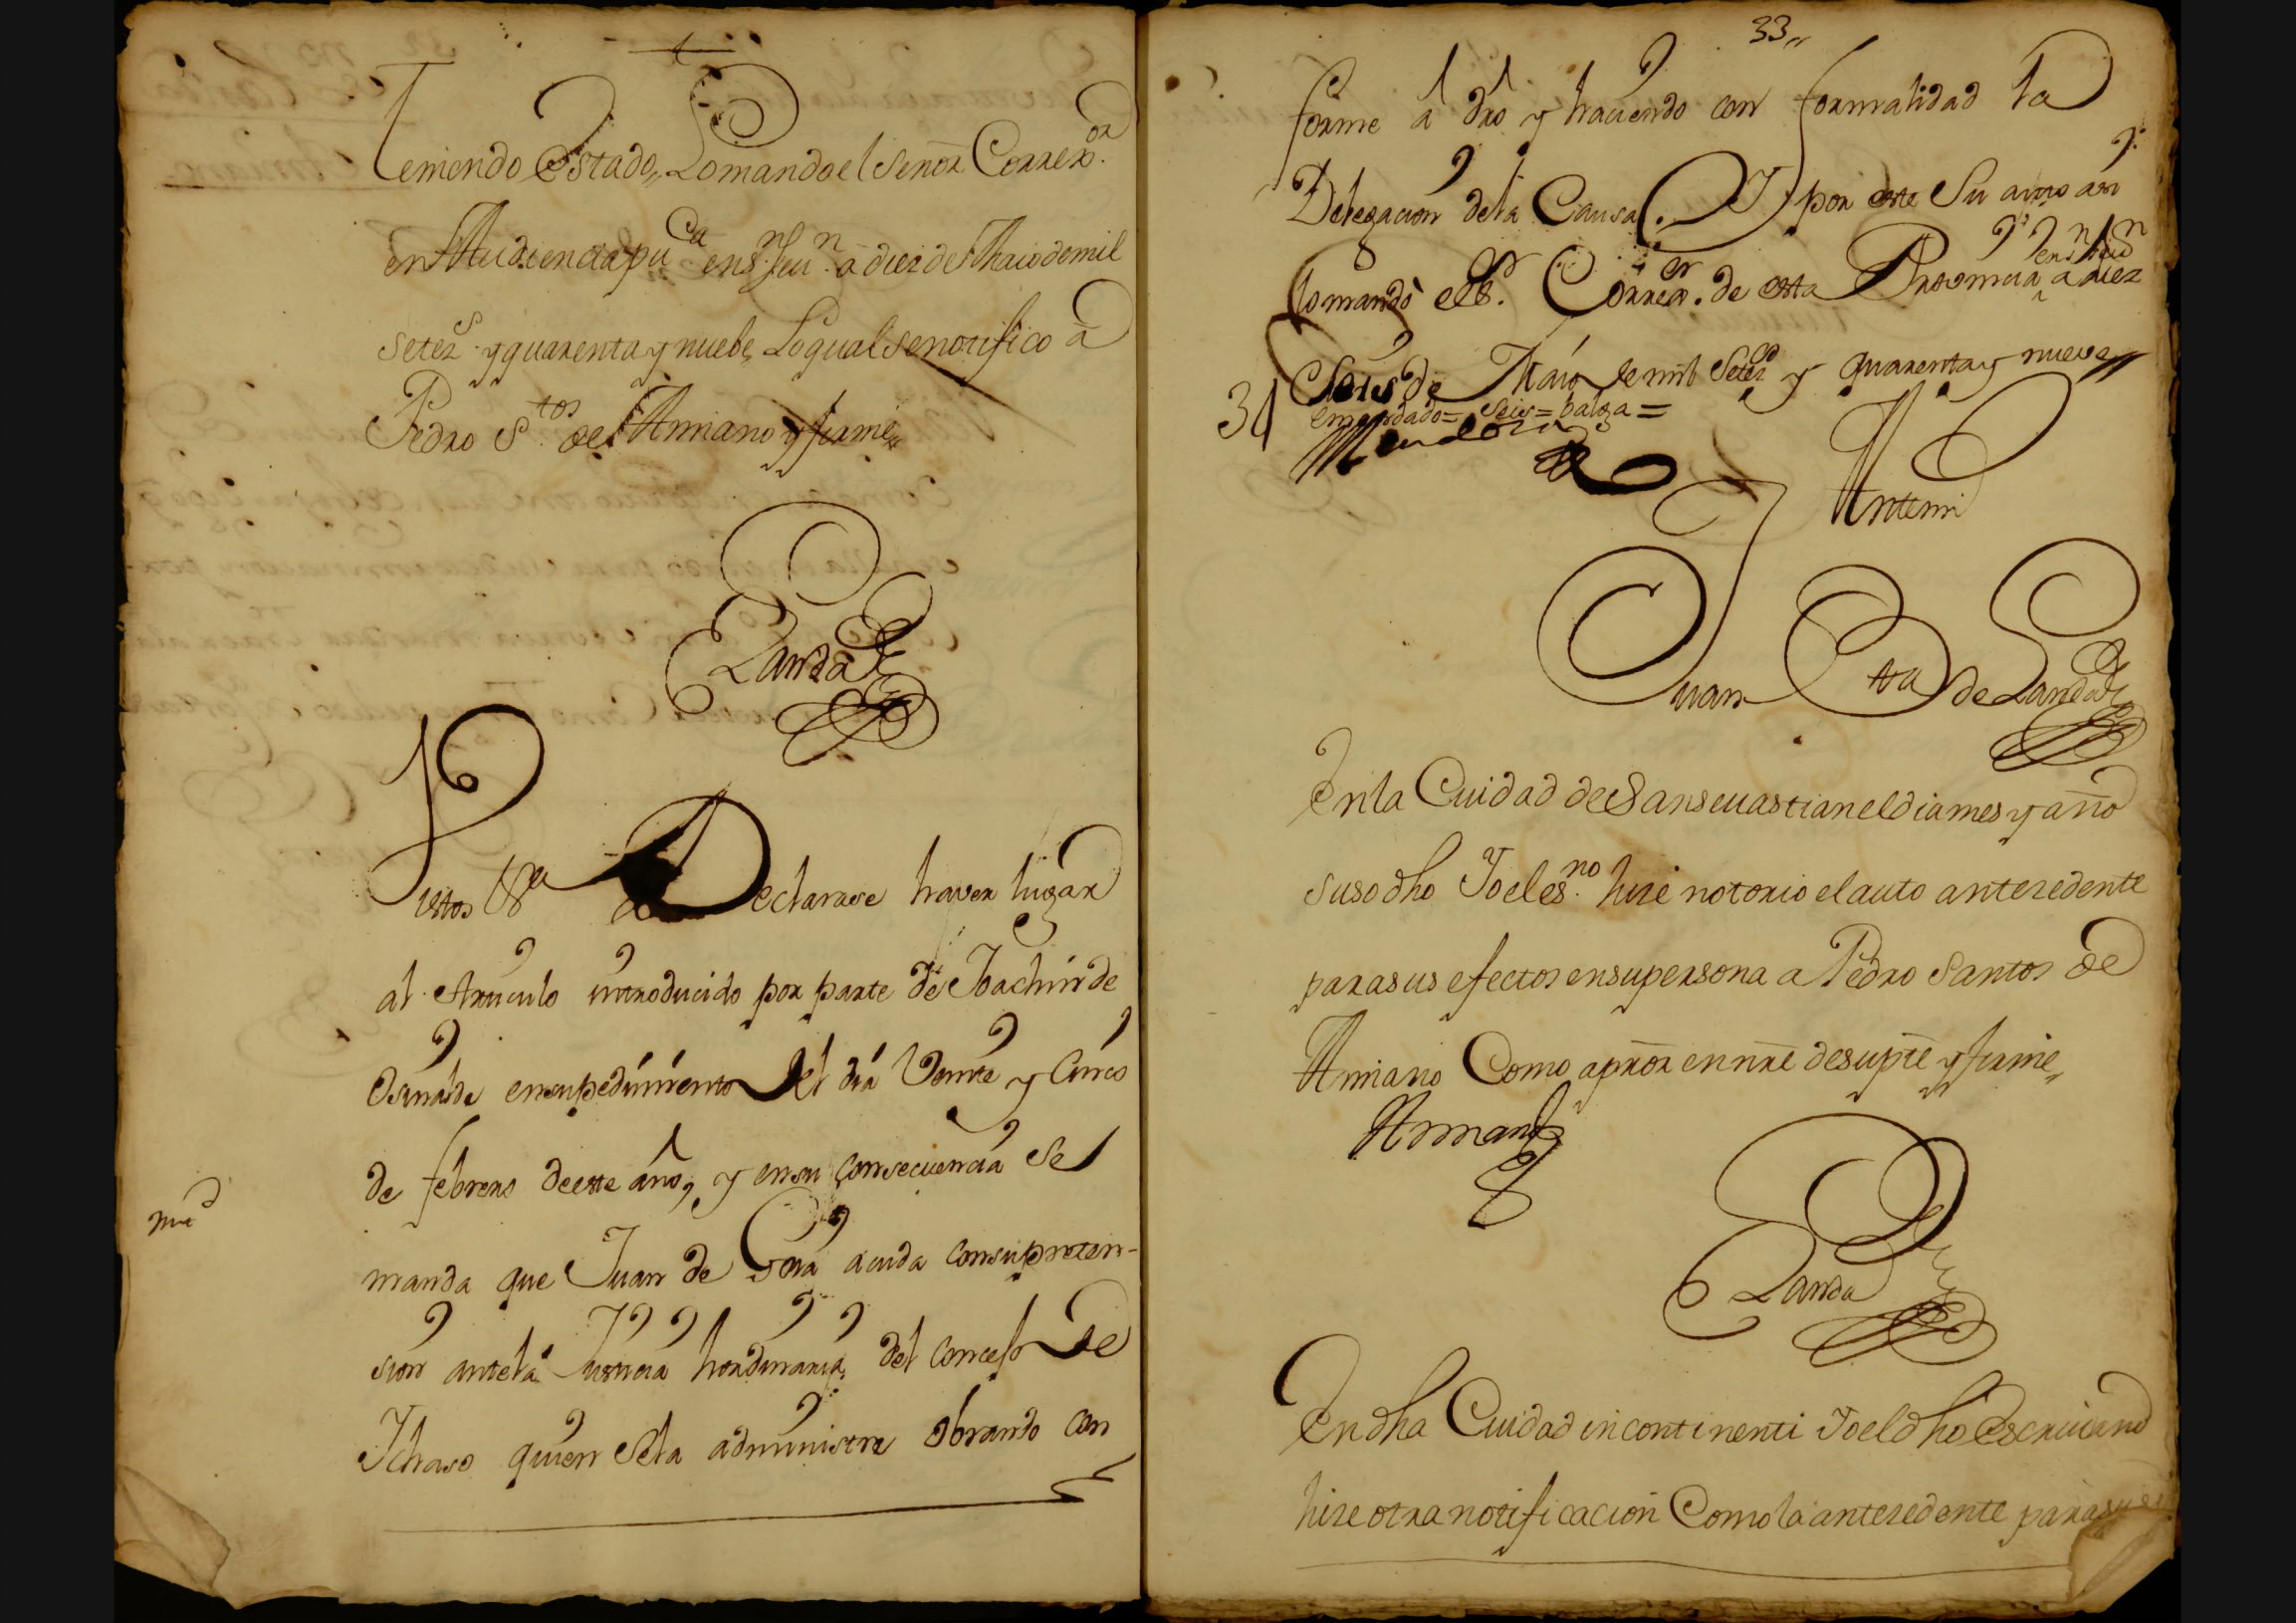 Teniendo Estado,, Lo mando el Señor Correx.or
en Audiencia pu.ca en S.n Seu.n a diez de Maio de mil
setez.s y quarenta y nuebe,, Lo qual se notifico a
Pedro S.tos de Amiano y firme,,
Landa
Vistos &a Declarase haver lugar
al Articulo introducido por parte de Joachin de
Osinalde en su pedimiento del dia Veinte y Cinco
de febrero de este año, y en su consecuencia se
manda que Juan de acuda con su preten-
sion ante la Justicia hordinaria, del concejo de
Ichaso quien se la administre obrando con
33,,
forme a dro y haciendo con formalidad la
Delegacion de la Causa. Y por este Su auto asi
lo mando el S.r Correx.or de esta Provincia a diez
en S.n Seu.n
y seis de Maio de mil Setez.s y quarenta y nueve,,
emendado= seis= balga=
31
Mendoza
Antemi
Juan Bta de Landa
En la Ciudad de San seuastian el dia mes y año
suso dho Yo el es.no hize notorio el auto antezedente
para sus efectos en su persona a Pedro Santos de
Amiano Como a pror en nre de su pte y firme,,
Amiano
Landa
En dha Ciudad incontinenti Yo el dho Escriuano
hize otra notificacion Como la antezedente para sus